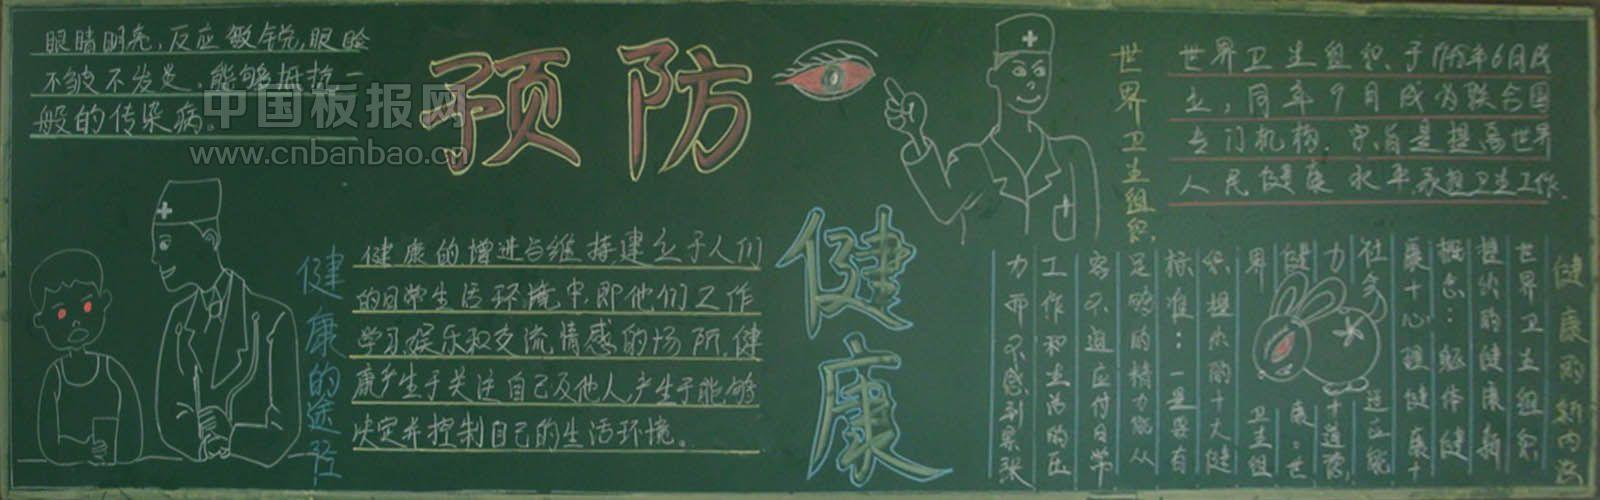 眼睛明亮，反应敏锐，眼睑
不皱不发炎，能够抵抗一
般的传染病。
中国板报网
www.cnbanbao.cn
预防
健康
世界卫生组织
世界卫生组织于 年6月成
立，同年9月成为联合国
专门机构，宗旨是提高世界
人民健康水平承担卫生工作
健康的途径
健康的增进与维持建立于人们
的日常生活环境中，即他们工作
学习，娱乐和交流情感的场所，健
康产生于关注自己及他人，产生于能够
决定并控制自己的生活环境。
健康的新内涵
世界卫生组织
提出的健康新
概念：躯体健
康+心理健康+
社会适应能
力+道德
健康：世
界卫生组
织提出的十大健
标准：一是要有
足够的精力能从
容不迫应付日常
工作和生活的压
力而不感到紧张